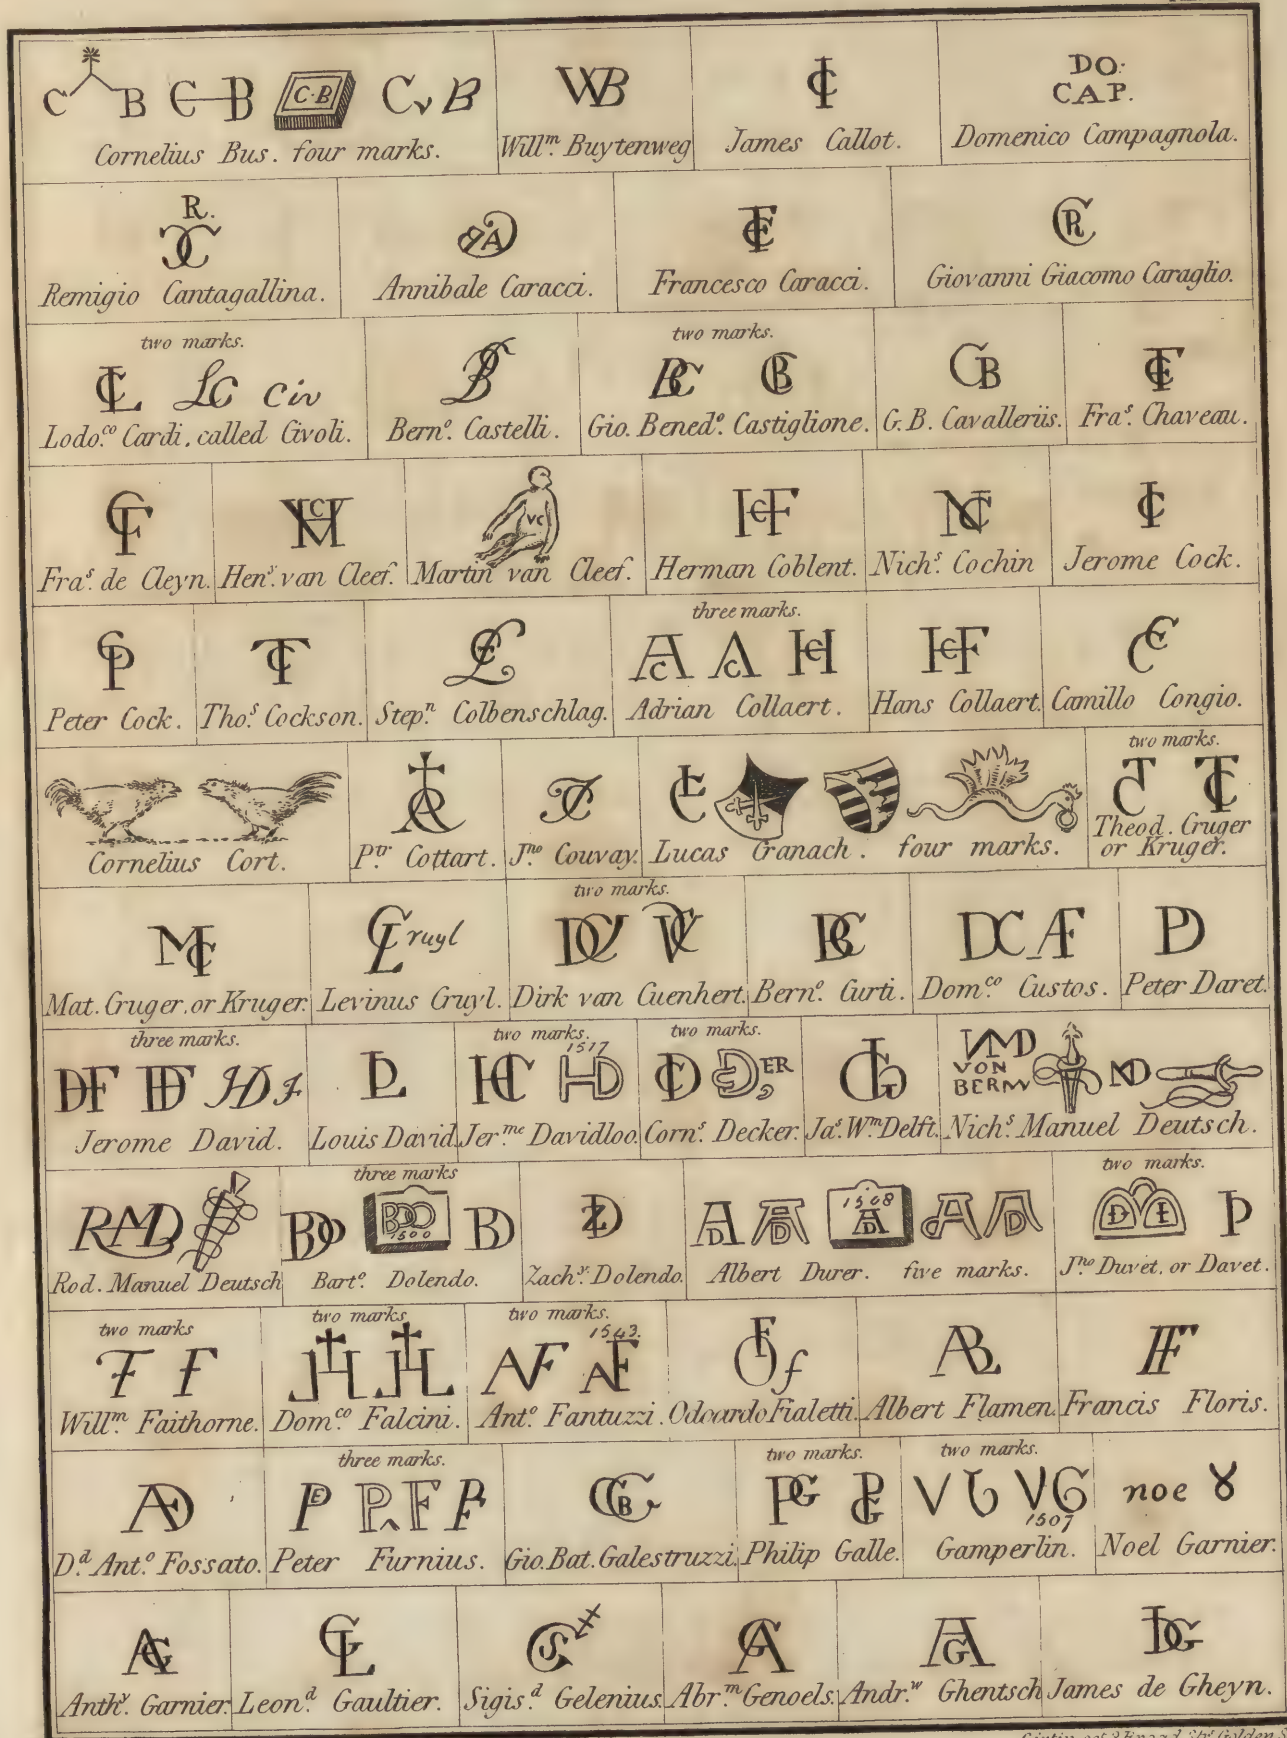 C B C B C·B C v B
Cornelius Bus. four marks.
WB
Will.m Buytenweg
IC
James Callot.
DO:
CAP.
Domenico Campagnola.
R.
CC
Remigio Cantagallina.
Annibale Caracci.
Francesco Caracci.
CR
Giovanni Giacomo Caraglio.
two marks.
LC LC civ
Lodo.co Cardi, called Civoli.
Bern.o Castelli.
two marks.
BC CB
Gio. Bened.o Castiglione.
CB
G.B. Cavalleriis.
Fra.s Chaveau.
CF
Fra.s de Cleyn.
Hen.y van Cleef.
VC
Martin van Cleef.
HCF
Herman Coblent.
NC
Nich.s Cochin
IC
Jerome Cock.
CP
Peter Cock.
TC
Tho.s Cockson.
Step.n Colbenschlag.
three marks.
AC AC HC
Adrian Collaert.
HCF
Hans Collaert.
CC
Camillo Congio.
Cornelius Cort.
P.tr Cottart.
J.no Couvay.
LC
Lucas Cranach. four marks.
two marks.
TC TC
Theod. Cruger
or Kruger.
MC
Mat. Cruger. or Kruger.
CL ruyl
Levinus Cruyl.
two marks.
DVC
Dirk van Cuenhert.
BC
Bern.o Curti.
DC AF
Dom.co Custos.
PD
Peter Daret.
three marks.
DF DF HDf
Jerome David.
LD
Louis David.
two marks.
1517
HC HD
Jer.me Davidloo.
two marks.
CD CD ER
Corn.s Decker.
Ja.s W.m Delft.
NMD
VON
BERN
NMD
Nich.s Manuel Deutsch.
RMD
Rod. Manuel Deutsch
three marks
BDO BDO 1500 BD
Bart.o Dolendo.
ZD
Zach.y Dolendo.
AD AD 1508 AD AD AD
Albert Durer. five marks.
two marks.
D E
J.no Duvet. or Davet.
two marks
F F
Will.m Faithorne.
two marks
Dom.co Falcini.
two marks.
1543.
AF AF
Ant.o Fantuzzi.
OF f
Odoardo Fialetti.
AB
Albert Flamen.
FF
Francis Floris.
AFD
D.d Ant.o Fossato.
three marks.
Peter Furnius.
GGB
Gio. Bat. Galestruzzi.
two marks.
PG PG
Philip Galle.
two marks.
VG VG
1507
Gamperlin.
noe
Noel Garnier.
AG
Anth.y Garnier.
GL
Leon.d Gaultier.
GS
Sigis.d Gelenius.
GA
Abr.m Genoels.
AG
Andr.w Ghentsch
IDG
James de Gheyn.